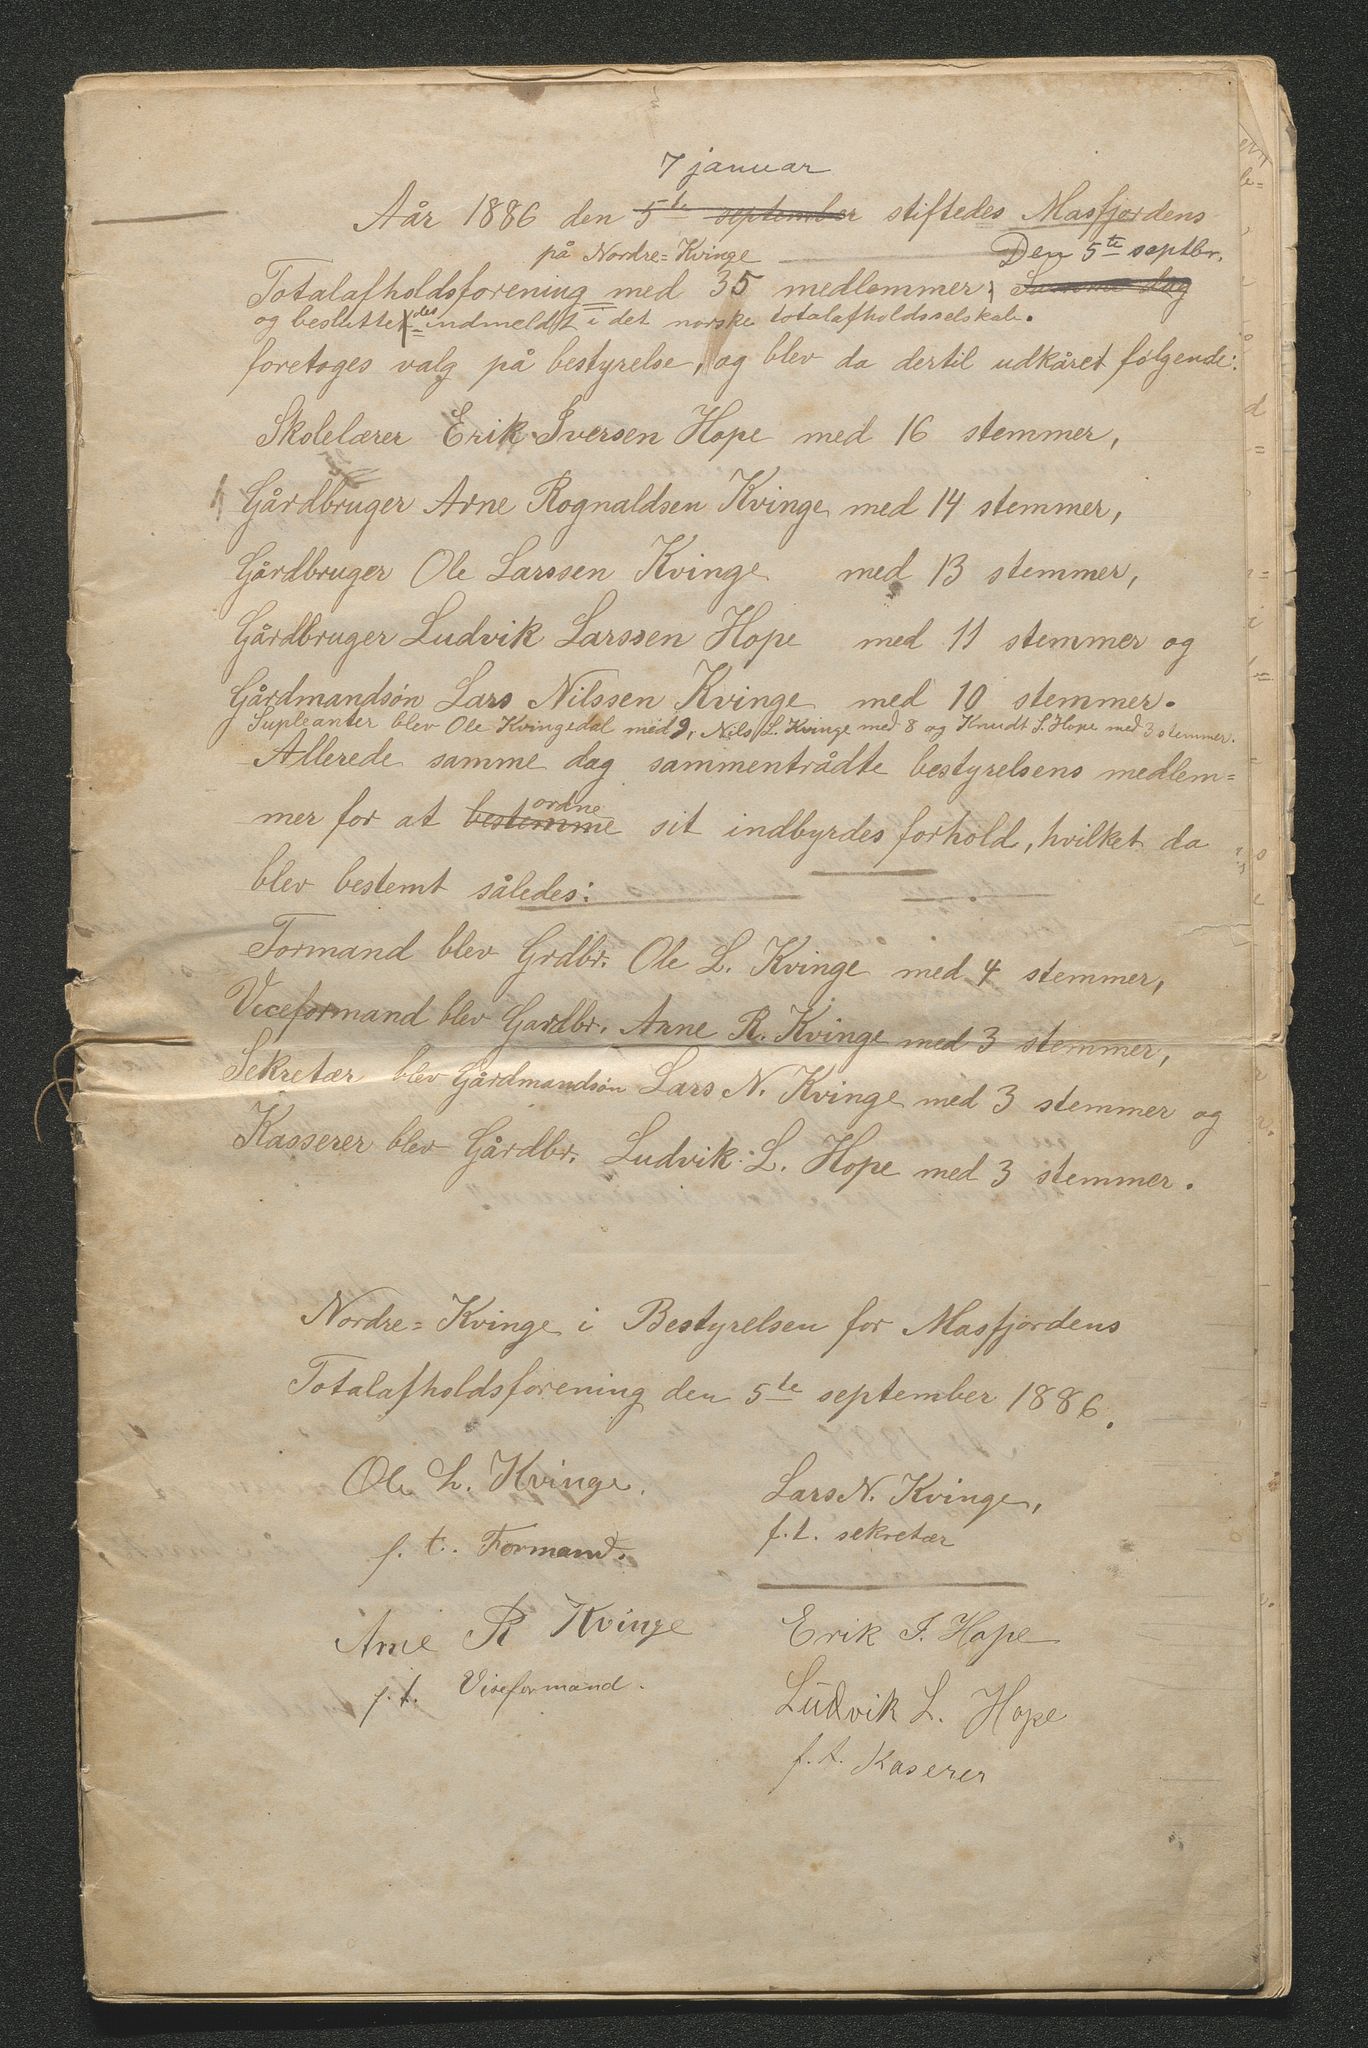 7 januar
Aår 1886 den 5te september stiftedes Masfjordens
på Nordre=Kvinge Den 5te septbr.
Totalafholdsforening med 35 medlemmer, Samme dag
og beslutte des indmeldt i det norske totalafholdsselskab.
foretoges valg på bestyrelse, og blev da dertil udkåret følgende:
Skolelærer Erik Iversen Hope med 16 stemmer,
Gårdbruger Arne Rognaldsen Kvinge med 14 stemmer,
Gårdbruger Ole Larssen Kvinge med 13 stemmer,
Gårdbruger Ludvik Larssen Hope med 11 stemmer og
Gårdmandsøn Lars Nilssen Kvinge med 10 stemmer.
Supleanter blev Ole Kvingedal med 9, Nils L. Kvinge med 8 og Knudt S. Hope med 3 stemmer.
Allerede samme dag sammentrådte bestyrelsens medlem=
ordne
mer for at bestemme sit indbyrdes forhold, hvilket da
blev bestemt således:
Formand blev Grdbr. Ole L. Kvinge med 4 stemmer,
Viceformand blev Gardbr. Arne R. Kvinge med 3 stemmer,
Sekretær blev Gårdmandsøn Lars N. Kvinge med 3 stemmer og
Kasserer blev Gårdbr. Ludvik L. Hope med 3 stemmer.
Nordre=Kvinge i Bestyrelsen for Masfjordens
Totalafholdsforening den 5te september 1886.
Ole L. Kvinge.
f. t. Formand.
Lars N. Kvinge,
f. t. sekretær
Arne R Kvinge
f. t. Viseformand.
Erik I. Hope
Ludvik L. Hope
f. t. Kaserer